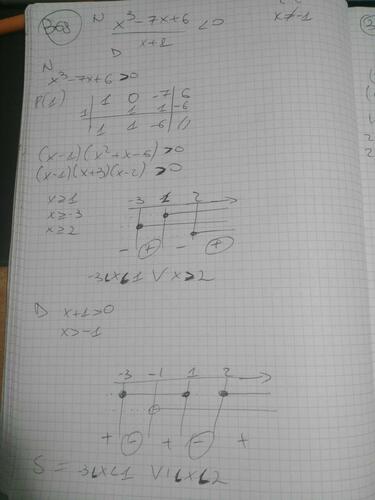 368 N x³-7x+6 <0 x≠-1
D x+1
N
x³-7x+6 >0
P(1) 1 0 -7 6
1 1 1 -6
1 1 -6 //
(x-1)(x²+x-6)>0
(x-1)(x+3)(x-2)>0
x≥1 -3 1 2
x≥-3
x≥2
- + - +
-3≤x≤1 ∨ x≥2
D x+1>0
x>-1
-3 -1 1 2
+ - + - +
S = -3≤x<1 ∨ 1≤x≤2